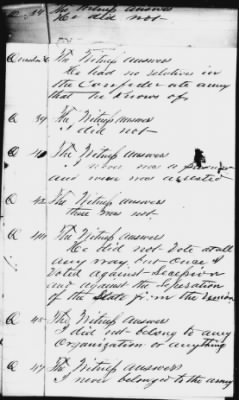 Q 34 The Witness answers
He did not
Question 36 The Witness answers
He had no relatives in
the Confederate army
that he knows of
Q 39 The Witness answers
I did not
Q 40 The Witness answers
I never was a
and never was arrested
Q 42 The Witness answers
there was not
Q 44 The Witness answers
He did not Vote at all
any way, but Once &
Voted against Secession
and against the Seperation
of the State from the Union
Q 45 The Witness answers
I did not belong to any
Organization or anything
Q 47 The Witness answers
I never belonged to the army